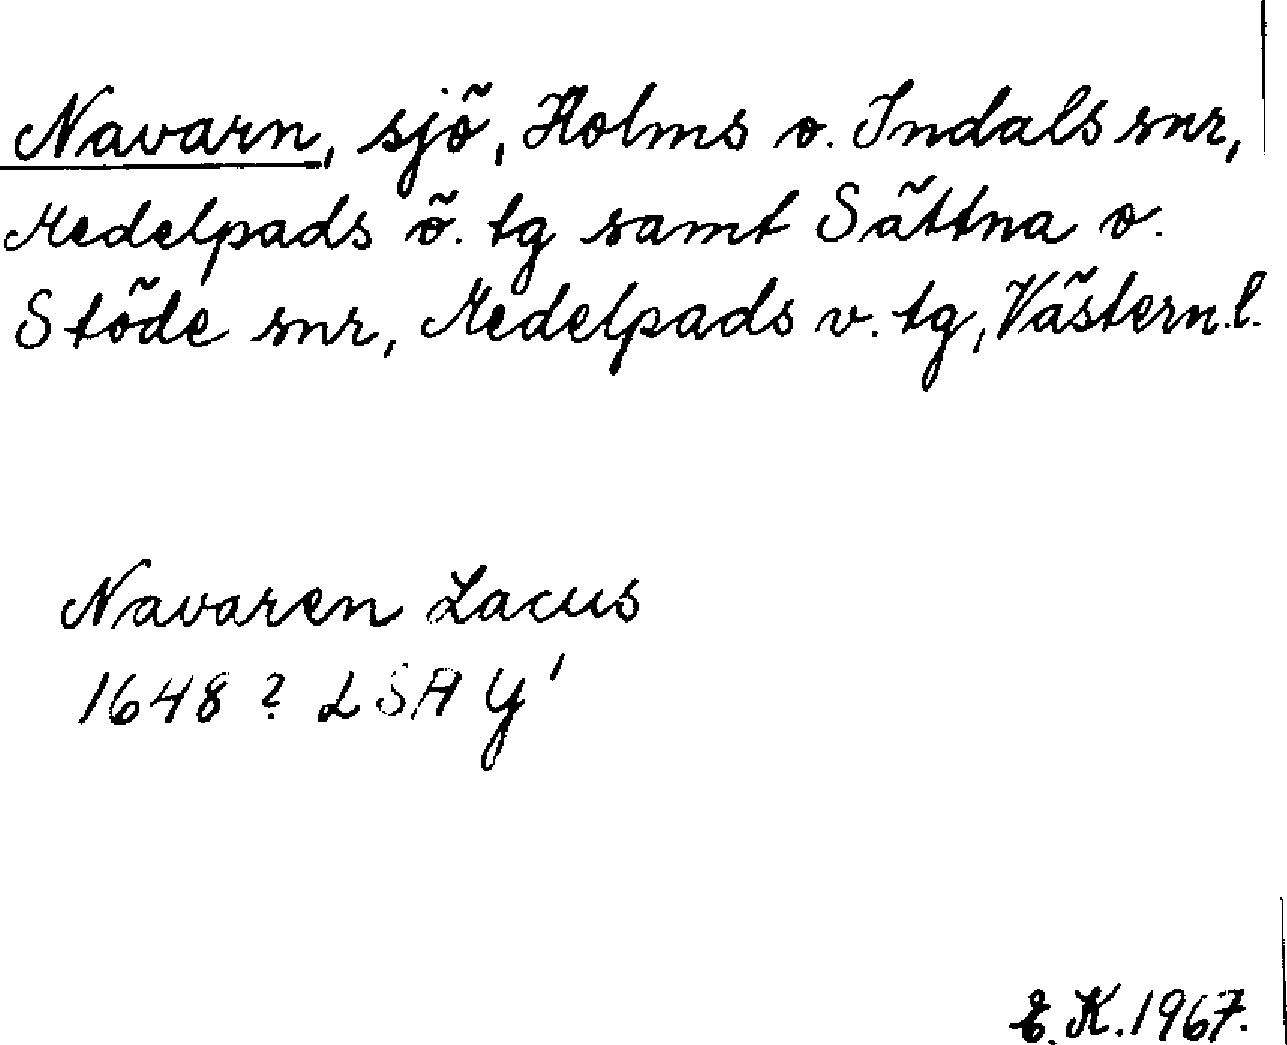 Navarn, sjö, Holms o. Indals snr,
Medelpads ö. tg samt Sättna o.
Stöde snr, Medelpads v. tg, Västern.l.
Navaren Lacus
1648? LSA Y'
E.K.1967.